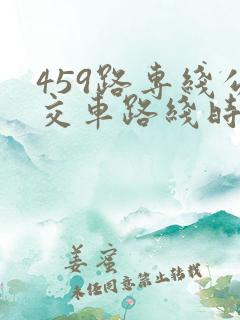 459路専綫公
交車路綫時
姜蜜
未经同意禁止转载